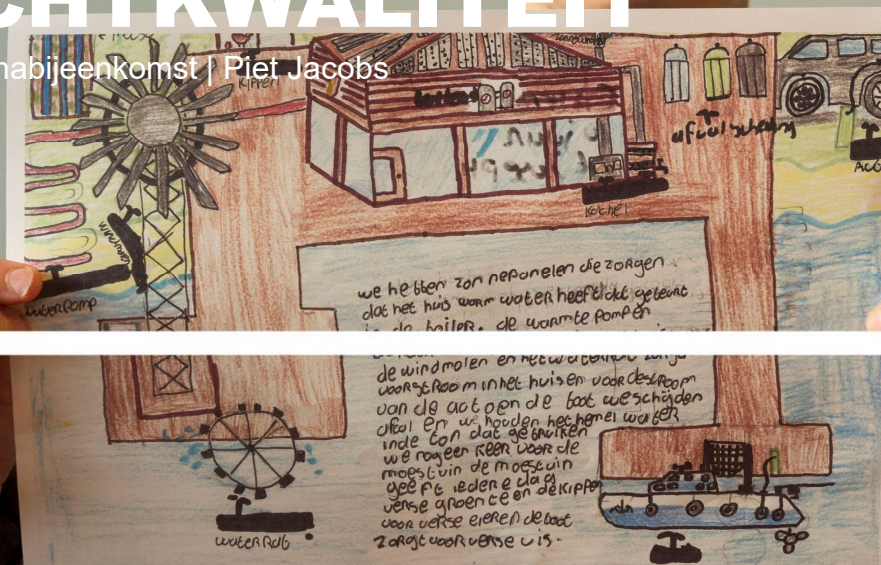 CHTKWALITEIT
nabijeenkomst | Piet Jacobs
kippen
afvalscheiding
kachel
windmolen
waterpomp
we hebben zonnepanelen die zorgen
dat het huis warm water heeft dat gebeurt
in de boiler. de warmte pompen
de windmolen en het waterrat zorgen
voor stroom in het huis en voor de stroom
van de acto en de boot we schijden
afval en we houden het hemel water
in de ton dat gebruiken
we nog een keer voor de
moestuin de moestuin
geeft iedere dag
verse groente en de kippen
voor verse eieren de boot
zorgt voor verse vis.
waterrat